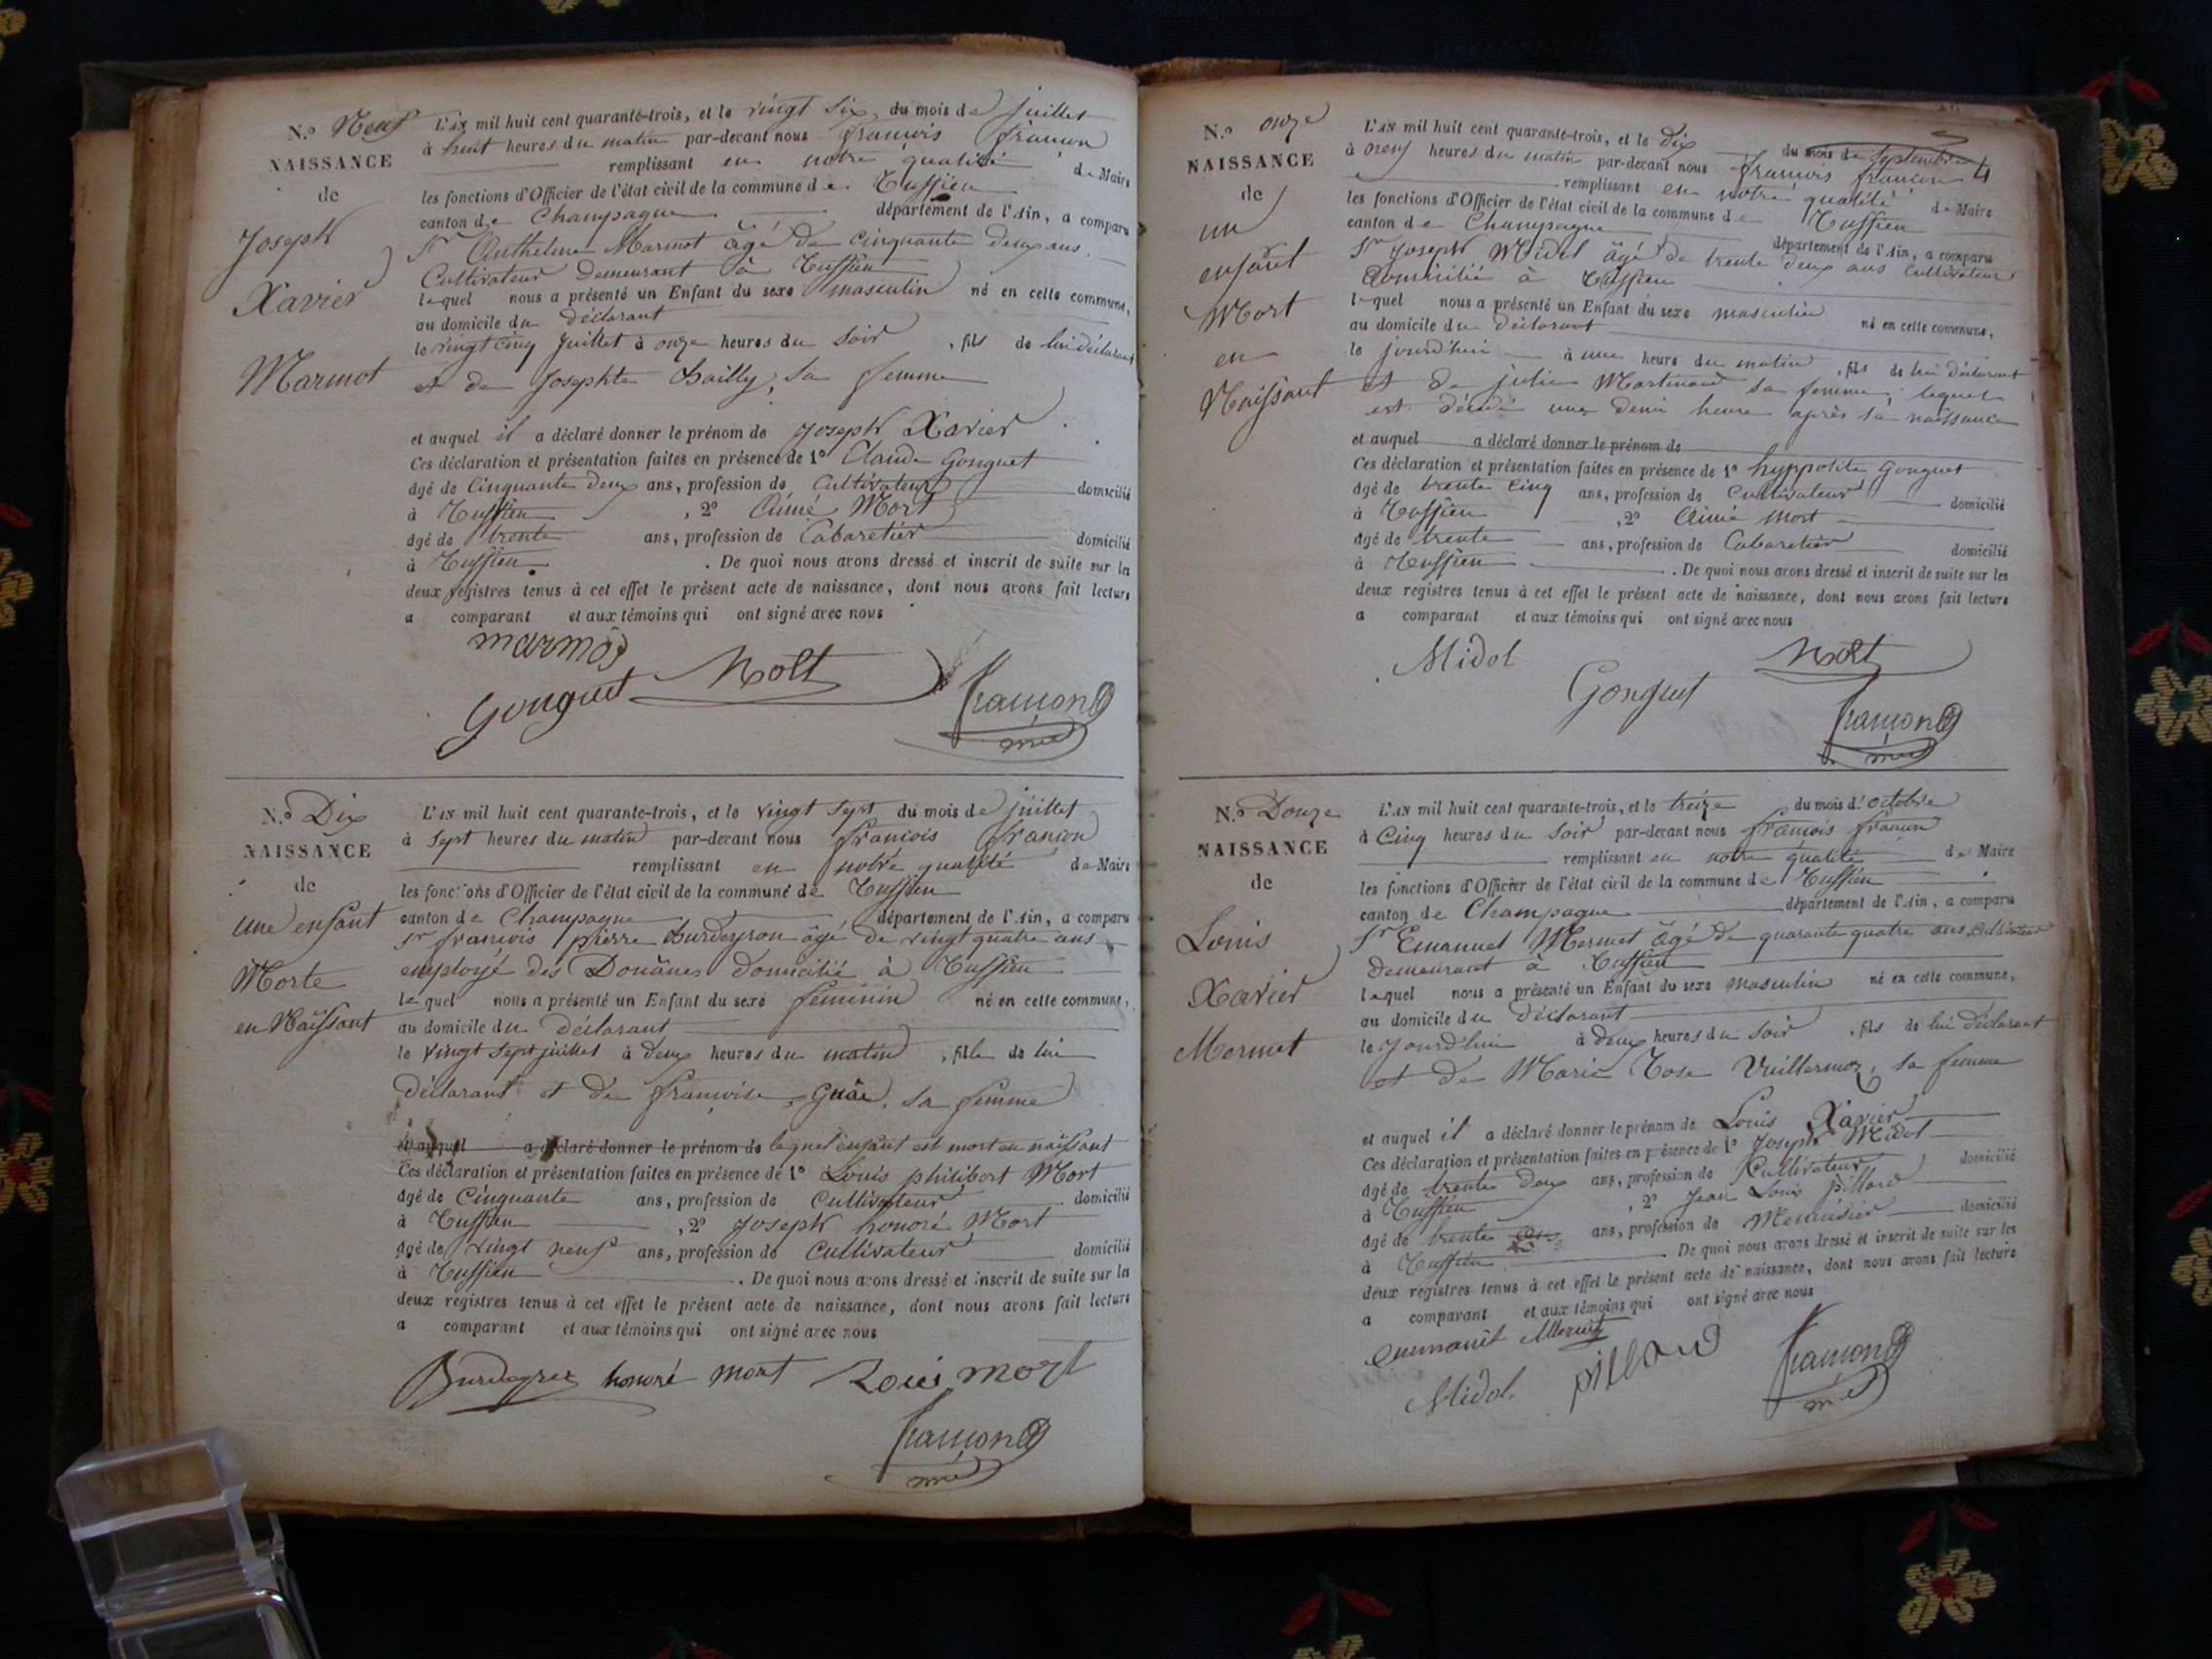 N.º Neuf
NAISSANCE
de
Joseph
Xavier
Marmot
L'an mil huit cent quarante-trois, et le vingt six, du mois de juillet
à huit heures du matin par-devant nous françois françon
remplissant en notre qualité de Maire
les fonctions d'Officier de l'état civil de la commune de
canton de Champagne département de l'Ain, a comparu
Sr Anthelme Marmot âgé de cinquante deux ans
Cultivateur demeurant à
lequel nous a présenté un Enfant du sexe masculin né en cette commune,
au domicile du déclarant
le vingt cinq juillet à onze heures du soir, fils de lui déclarant
et de Josephte Bailly, sa femme
et auquel il a déclaré donner le prénom de Joseph Xavier
Ces déclaration et présentation faites en présence de 1º Claude Gonguet
âgé de Cinquante deux ans, profession de Cultivateur domicilié
à , 2º Aimé Mort
âgé de trente ans, profession de Cabaretier domicilié
à . De quoi nous avons dressé et inscrit de suite sur les
deux registres tenus à cet effet le présent acte de naissance, dont nous avons fait lecture
a comparant et aux témoins qui ont signé avec nous
marmot
Gonguet Mort françon
N.º Dix
NAISSANCE
de
une enfant
Morte
en Naissant
L'an mil huit cent quarante-trois, et le vingt sept du mois de juillet
à sept heures du matin par-devant nous françois françon
remplissant en notre qualité de Maire
les fonctions d'Officier de l'état civil de la commune de
canton de Champagne département de l'Ain, a comparu
Sr françois pierre Burdeyron âgé de vingt quatre ans
employé des Douânes domicilié à
lequel nous a présenté un Enfant du sexe féminin né en cette commune,
au domicile du déclarant
le vingt sept juillet à deux heures du matin, fille de lui
déclarant et de françoise , sa femme
et auquel a déclaré donner le prénom de lequel enfant est mort en naissant
Ces déclaration et présentation faites en présence de 1º Louis philibert Mort
âgé de Cinquante ans, profession de Cultivateur domicilié
à , 2º Joseph honoré Mort
âgé de vingt neuf ans, profession de Cultivateur domicilié
à . De quoi nous avons dressé et inscrit de suite sur les
deux registres tenus à cet effet le présent acte de naissance, dont nous avons fait lecture
a comparant et aux témoins qui ont signé avec nous
honoré mort Loui mort
françon
N.º onze
NAISSANCE
de
un
enfant
Mort
en
Naissant
L'an mil huit cent quarante-trois, et le dix du mois de septembre
à neuf heures du matin par-devant nous françois françon
remplissant en notre qualité de Maire
les fonctions d'Officier de l'état civil de la commune de
canton de Champagne département de l'Ain, a comparu
Sr Joseph Midol âgé de trente deux ans Cultivateur
domicilié à
lequel nous a présenté un Enfant du sexe masculin né en cette commune,
au domicile du déclarant
le jourd'hui à une heure du matin, fils de lui déclarant
et de julie Martinand sa femme, lequel
est décédé une demi heure après sa naissance
et auquel a déclaré donner le prénom de
Ces déclaration et présentation faites en présence de 1º hyppolite Gonguet
âgé de trente cinq ans, profession de Cultivateur domicilié
à , 2º Aimé Mort
âgé de trente ans, profession de Cabaretier domicilié
à . De quoi nous avons dressé et inscrit de suite sur les
deux registres tenus à cet effet le présent acte de naissance, dont nous avons fait lecture
a comparant et aux témoins qui ont signé avec nous
Midol Mort
Gonguet
françon
N.º Douze
NAISSANCE
de
Louis
Xavier
Mermet
L'an mil huit cent quarante-trois, et le treize du mois d'octobre
à Cinq heures du soir par-devant nous françois françon
remplissant en notre qualité de Maire
les fonctions d'Officier de l'état civil de la commune de
canton de Champagne département de l'Ain, a comparu
Sr Emanuel Mermet âgé de quarante quatre ans Cultivateur
demeurant à
lequel nous a présenté un Enfant du sexe masculin né en cette commune,
au domicile du déclarant
le jourd'hui à deux heures du soir, fils de lui déclarant
et de Marie Rose Vuillermoz, sa femme
et auquel il a déclaré donner le prénom de Louis Xavier
Ces déclaration et présentation faites en présence de 1º Joseph Midol
âgé de trente deux ans, profession de Cultivateur domicilié
à , 2º Jean Louis pillard
âgé de trente ans, profession de Menuisier domicilié
à . De quoi nous avons dressé et inscrit de suite sur les
deux registres tenus à cet effet le présent acte de naissance, dont nous avons fait lecture
a comparant et aux témoins qui ont signé avec nous
Mermet
Midol pillard françon